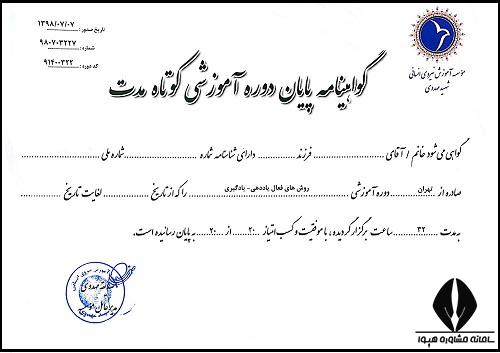 تاریخ صدور : ۱۳۹۸/۰۷/۰۷
شماره : ۹۸۰۷۰۳۲۲۷
کد دوره : ۹۱۴۰۰۳۲۲
موسسه آموزش نیروی انسانی
شهید مهدوی
گواهینامه پایان دوره آموزشی کوتاه مدت
گواهی می شود خانم / آقای .......... فرزند .......... دارای شناسنامه شماره .......... شماره ملی ..........
صادره از تهران دوره آموزشی روش های فعال یاددهی- یادگیری را که از تاریخ .......... لغایت تاریخ ..........
به مدت ۳۲ ساعت برگزار گردیده ، با موفقیت و کسب امتیاز ۲۰ از ۲۰ به پایان رسانیده است.
مهدوی
مدیرعامل
سامانه مشاوره هیوا